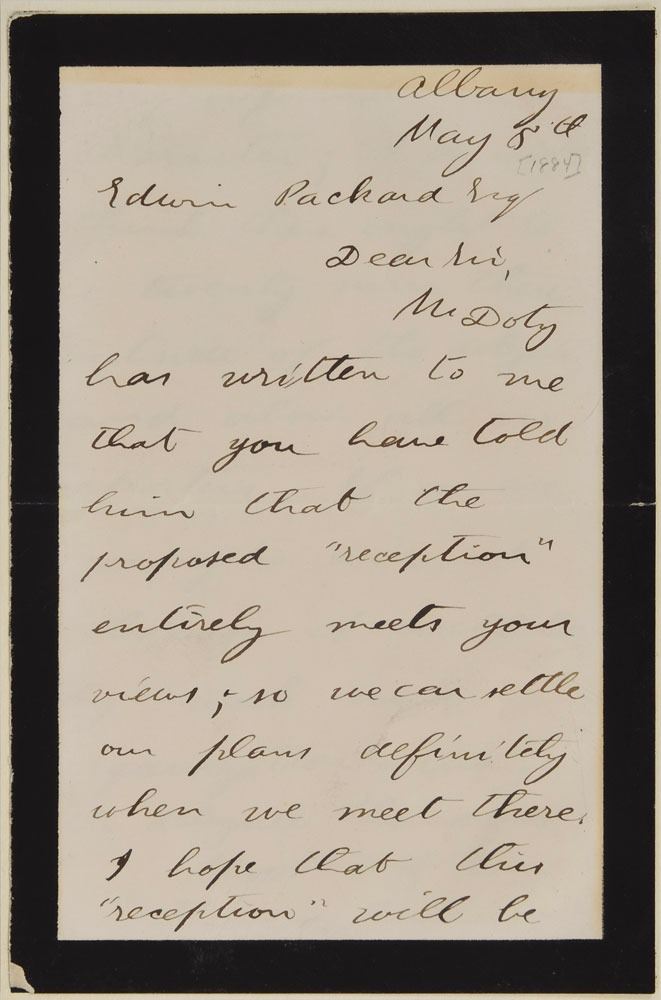 Albany
May 8th
[1884]
Edwin Packard Esq
Dear Sir,
Mr Doty
has written to me
that you have told
him that the
proposed "reception"
entirely meets your
views; so we can settle
our plans definitely
when we meet there.
I hope that this
"reception" will be